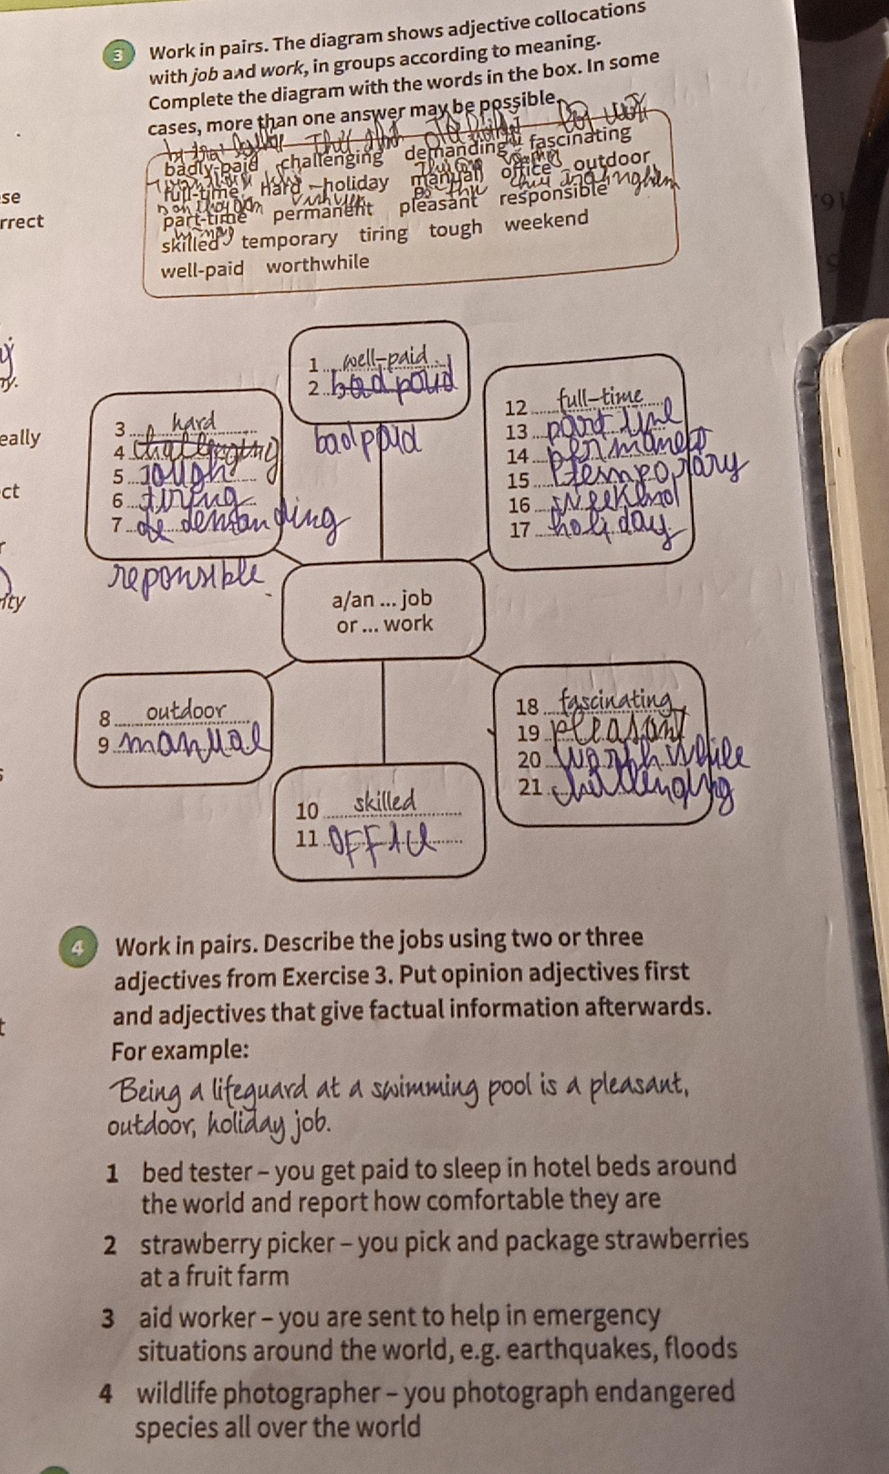 3 Work in pairs. The diagram shows adjective collocations
with job and work, in groups according to meaning.
Complete the diagram with the words in the box. In some
cases, more than one answer may be possible.
badly-paid challenging demanding fascinating
full-time hard holiday manual office outdoor
part-time permanent pleasant responsible
skilled temporary tiring tough weekend
well-paid worthwhile
se
rrect
eally
ct
ity
1 well-paid
2 bad poud
bad paid
3 hard
4 challenging
5 tough
6 tiring
7 de demanding
reponsible
12 full-time
13 part time
14 permanent
15 temporary
16 weekend
17 holiday
a/an ... job
or ... work
8 outdoor
9 manual
10 skilled
11 office
18 fascinating
19 pleasant
20 worthwhile
21 challenging
4 Work in pairs. Describe the jobs using two or three
adjectives from Exercise 3. Put opinion adjectives first
and adjectives that give factual information afterwards.
For example:
Being a lifeguard at a swimming pool is a pleasant,
outdoor, holiday job.
1 bed tester – you get paid to sleep in hotel beds around
the world and report how comfortable they are
2 strawberry picker – you pick and package strawberries
at a fruit farm
3 aid worker – you are sent to help in emergency
situations around the world, e.g. earthquakes, floods
4 wildlife photographer – you photograph endangered
species all over the world